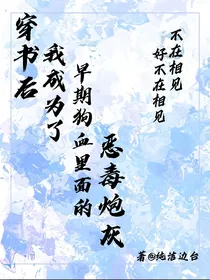 穿书后
我成为了
早期狗血里面的
恶毒炮灰
不在相见
好不在相见
著@纯洁边台